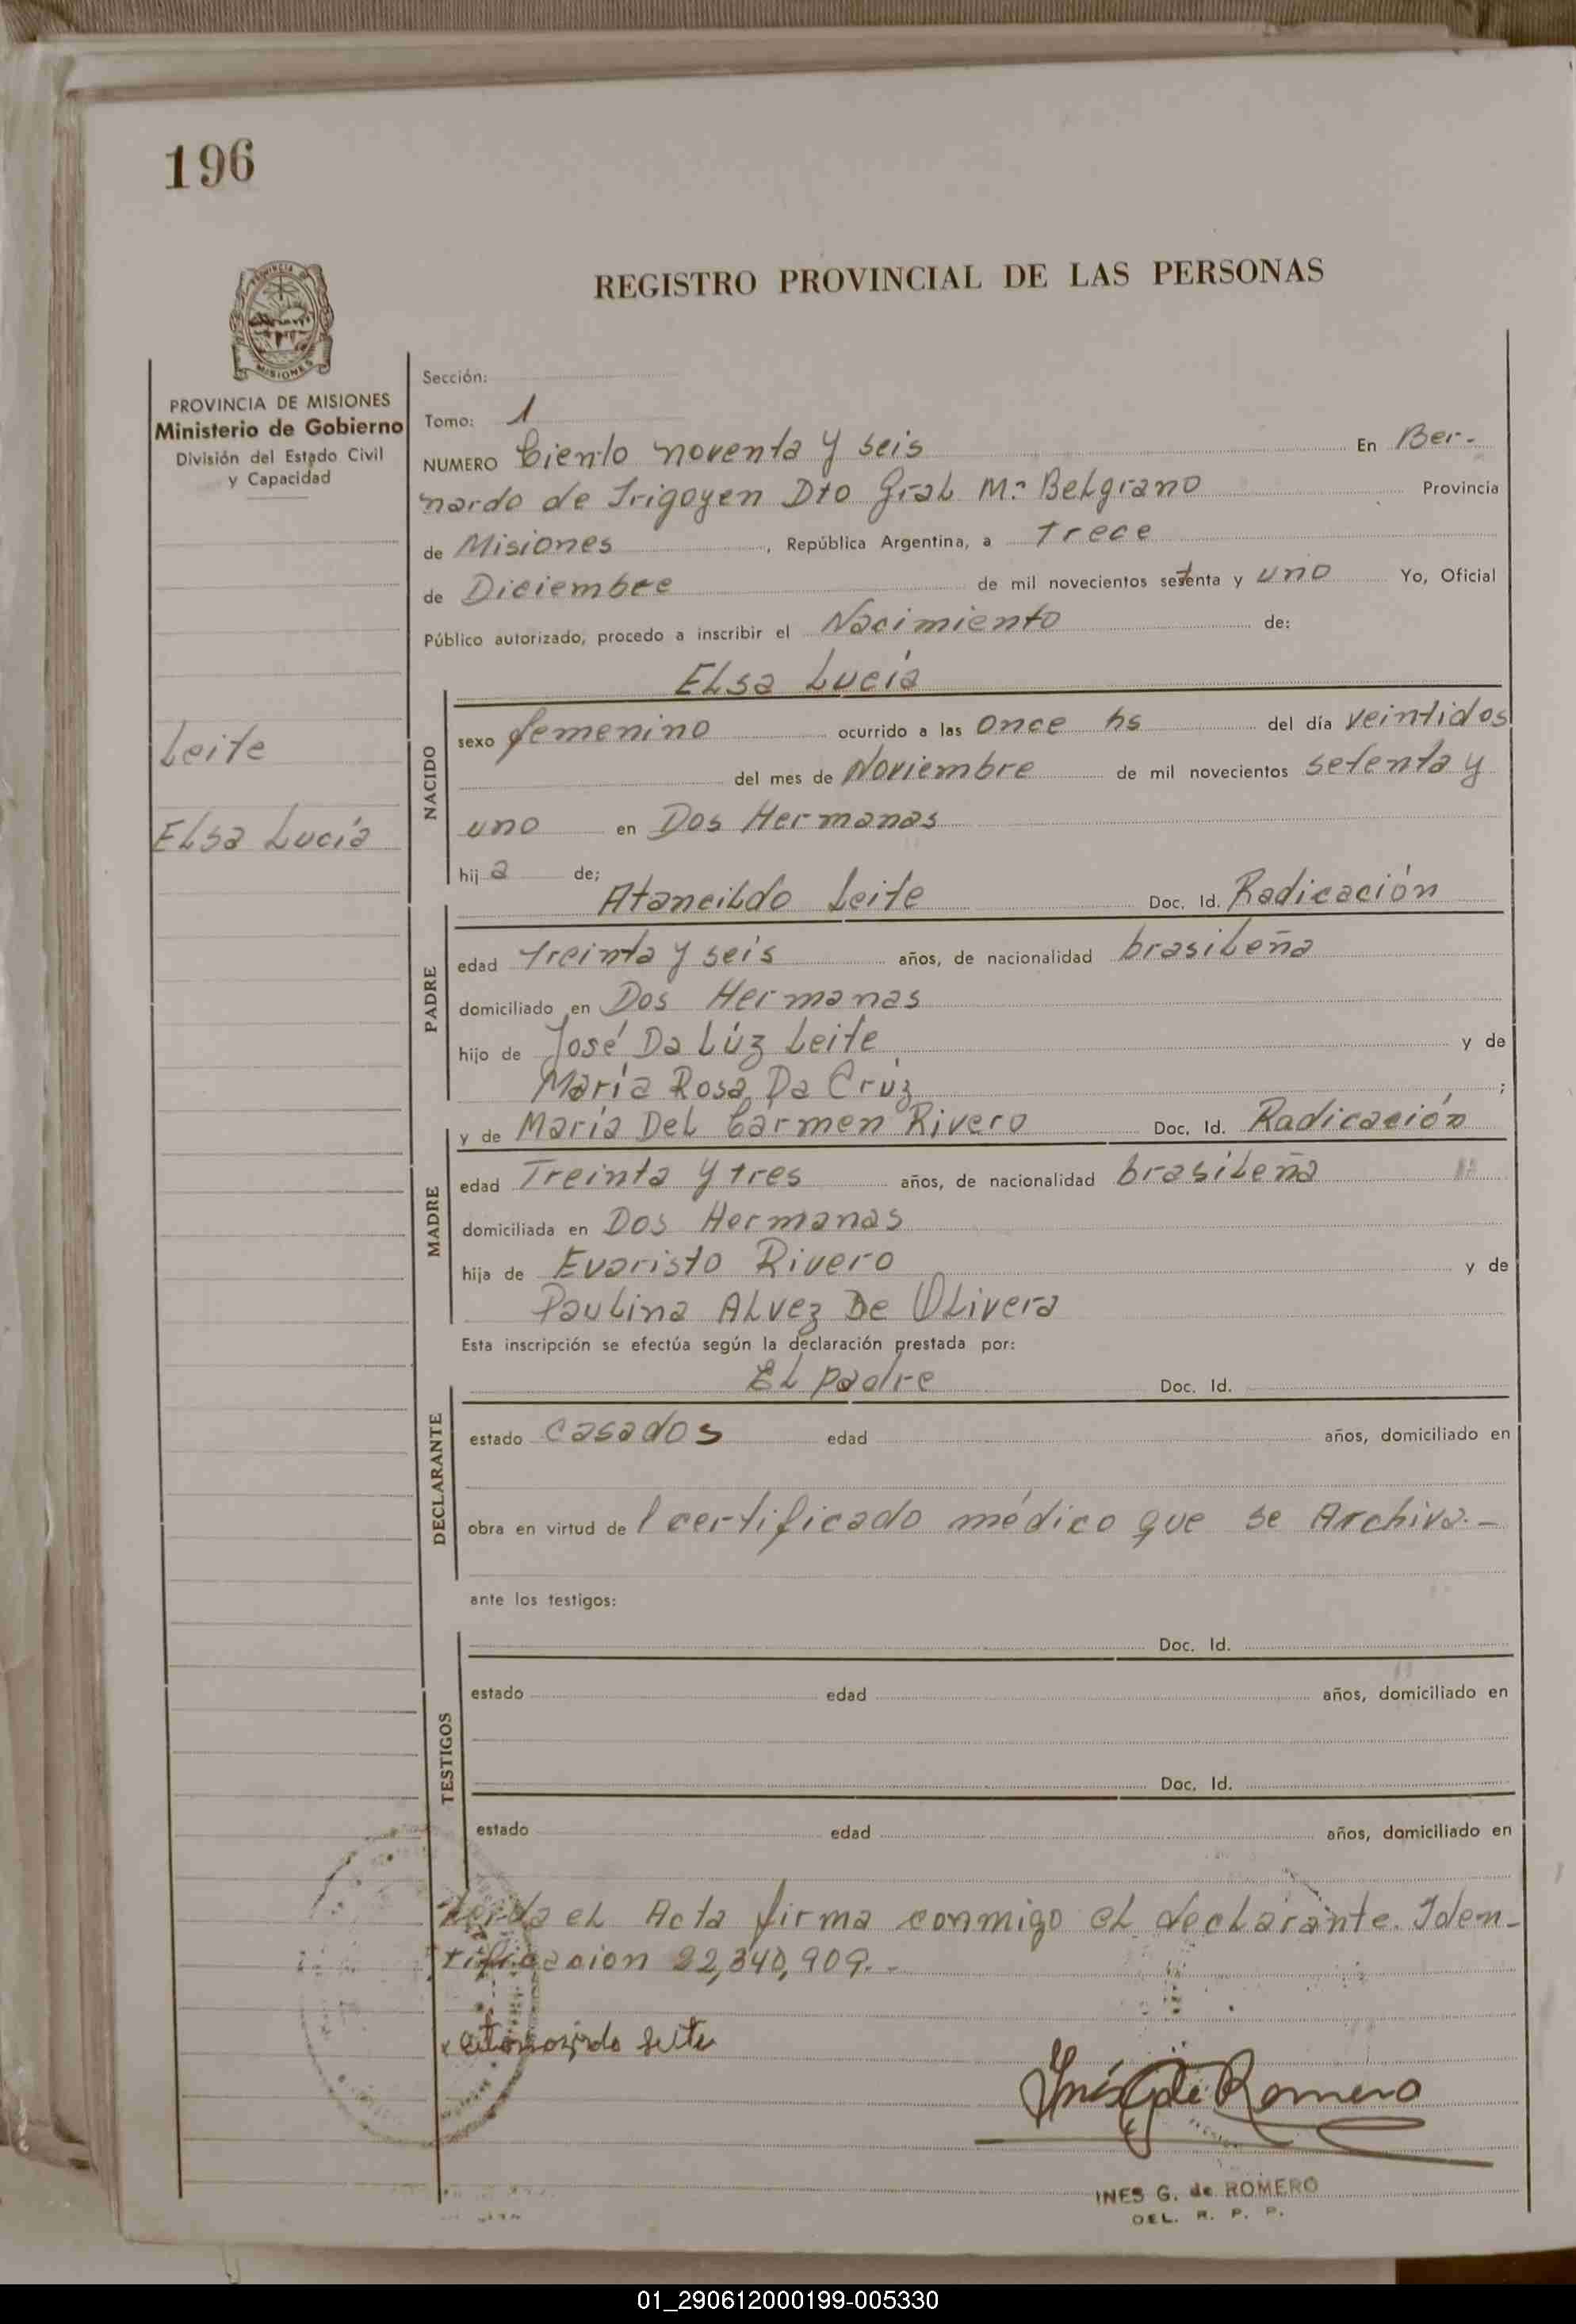 196
REGISTRO PROVINCIAL DE LAS PERSONAS
PROVINCIA DE MISIONES
Ministerio de Gobierno
División del Estado Civil
y Capacidad
Leite
Elsa Lucía
Sección:
Tomo: 1
NUMERO Ciento noventa y seis En Ber-
nardo de Irigoyen Dto Gral M. Belgrano Provincia
de Misiones, República Argentina, a trece
de Diciembre de mil novecientos setenta y uno Yo, Oficial
Público autorizado, procedo a inscribir el Nacimiento de:
Elsa Lucía
NACIDO
sexo femenino ocurrido a las once hs del día veintidos
del mes de Noviembre de mil novecientos setenta y
uno en Dos Hermanas
hija de;
Atancildo Leite Doc. Id. Radicación
PADRE
edad treinta y seis años, de nacionalidad brasileña
domiciliado en Dos Hermanas
hijo de José Da Lúz Leite y de
María Rosa Da Crúz ;
y de María Del Cármen Rivero Doc. Id. Radicación
MADRE
edad Treinta y tres años, de nacionalidad brasileña
domiciliada en Dos Hermanas
hija de Evaristo Rivero y de
Paulina Alvez De Olivera
Esta inscripción se efectúa según la declaración prestada por:
El padre Doc. Id.
DECLARANTE
estado casados edad años, domiciliado en
obra en virtud de l certificado médico que se Archiva.-
ante los testigos:
Doc. Id.
TESTIGOS
estado edad años, domiciliado en
Doc. Id.
estado edad años, domiciliado en
Leida el Acta firma conmigo el declarante. Iden-
tificacion 22,340,909.-
Leite
Inés G de Romero
INES G. de ROMERO
DEL. R. P. P.
01_290612000199-005330